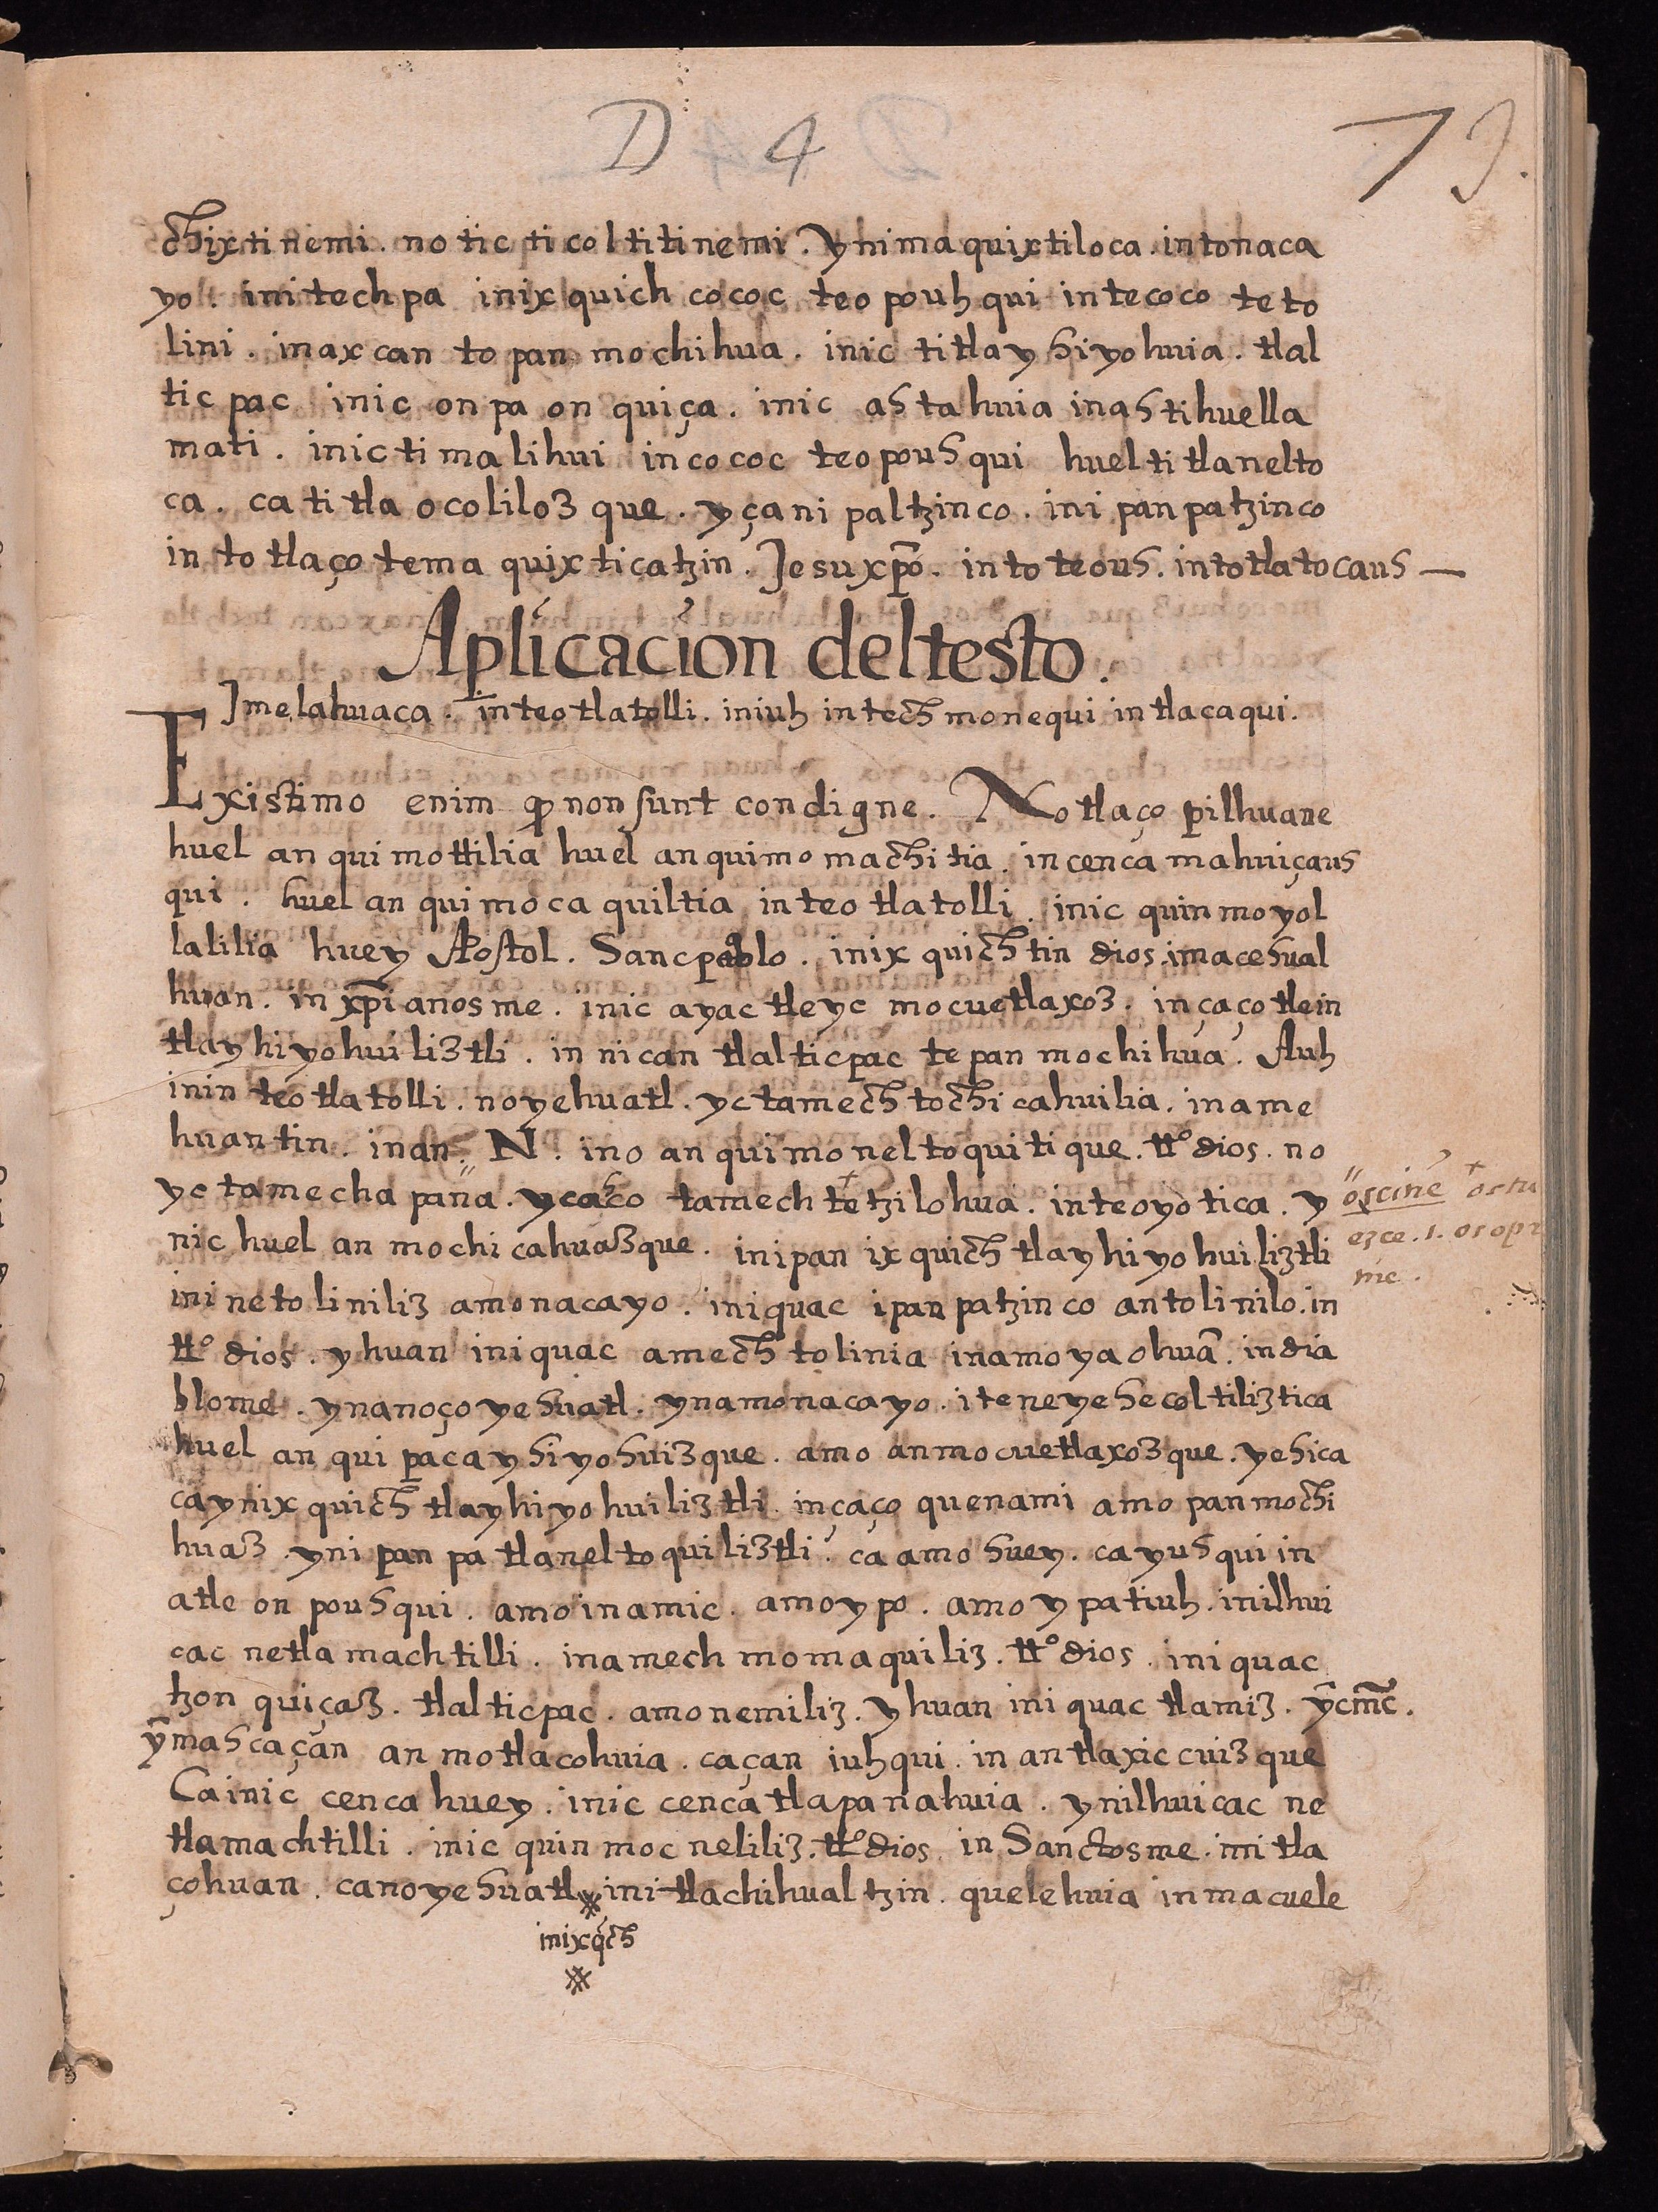 D 4
73.
chixtinemi. no tic ti col ti ti nemi. ynima quixtiloca. in tonaca
yo. initechpa inixquich cococ teopouhqui in tecoco teto
lini. in axcan topan mochihua. inic titlayhiyohuia. tlal
ticpac inic onpa onquiça. inic ahtahuia in ahtihuella
mati. inic timalihui in cococ teopouhqui huel titlanelto
ca. ca titlaocolilozque. yçanipaltzinco. inipanpatzinco
in totlaçotemaquixticatzin. Jesuxp̄o. in toteouh. in totlatocauh —
Aplicacion del testo.
Jmelahuaca. in teotlatolli. iniuh intech monequi in tlacaqui.
Existimo enim q̄ non sunt condigne. Notlaçopilhuane
huel anquimottilia huel anquimomachitia. in cenca mahuiçauh
qui. huel anquimocaquiltia in teotlatolli. inic quinmoyol
lalilia huey Apostol. Sanc pablo. inixquichtin dios. imacehual
huan. in xp̄ianosme. inic ayac tleyc mocuetlaxoz. in çaço tlein
tlayhiyohuiliztli. in nican tlalticpac tepan mochihua. Auh
inin teotlatolli. no yehuatl. yc tamechtochicahuilia. in ame
huantin. in an. N. in o anquimoneltoquitique. tt° dios. no
yc tamechapana. ycahco tamechtetzilohua. in teoyotica. y
nic huel anmochicahuazque. inipan ixquich tlayhiyohuiliztli
ini netoliniliz amonacayo. iniquac ipanpatzinco antolinilo. in
tt° dios. yhuan iniquac amechtolinia in amoyaohuā. in dia
blome. ynanoço yehuatl. yn amonacayo. iteneyehecoltiliztica
huel anquipacayhiyohuizque. amo anmocuetlaxozque. yehica
ca ynixquich tlayhiyohuiliztli. in çaço quenami amopan mochi
huaz. ynipanpa tlaneltoquiliztli? ca amo huey. ca yuhqui in
atle onpouhqui. amo inamic. amo ypo. amo ypatiuh. in ilhui
cac netlamachtilli. in amechmomaquiliz. tt° dios. iniquac
tzonquiçaz. tlalticpac. amonemiliz. yhuan iniquac tlamiz. ȳcm̄c.
ȳ mah caçan anmotlacohuia. caçan iuhqui. in antlaxiccuizque
Ca inic cenca huey. inic cenca tlapanahuia. yn ilhuicac ne
tlamachtilli. inic quinmocneliliz. tt° dios. in Sanctosme. in itla
çohuan. ca no yehuatl ※ in itlachihualtzin. quelehuia in macuele
oscine
ezce. 1.
me.
inixq̄ch
※